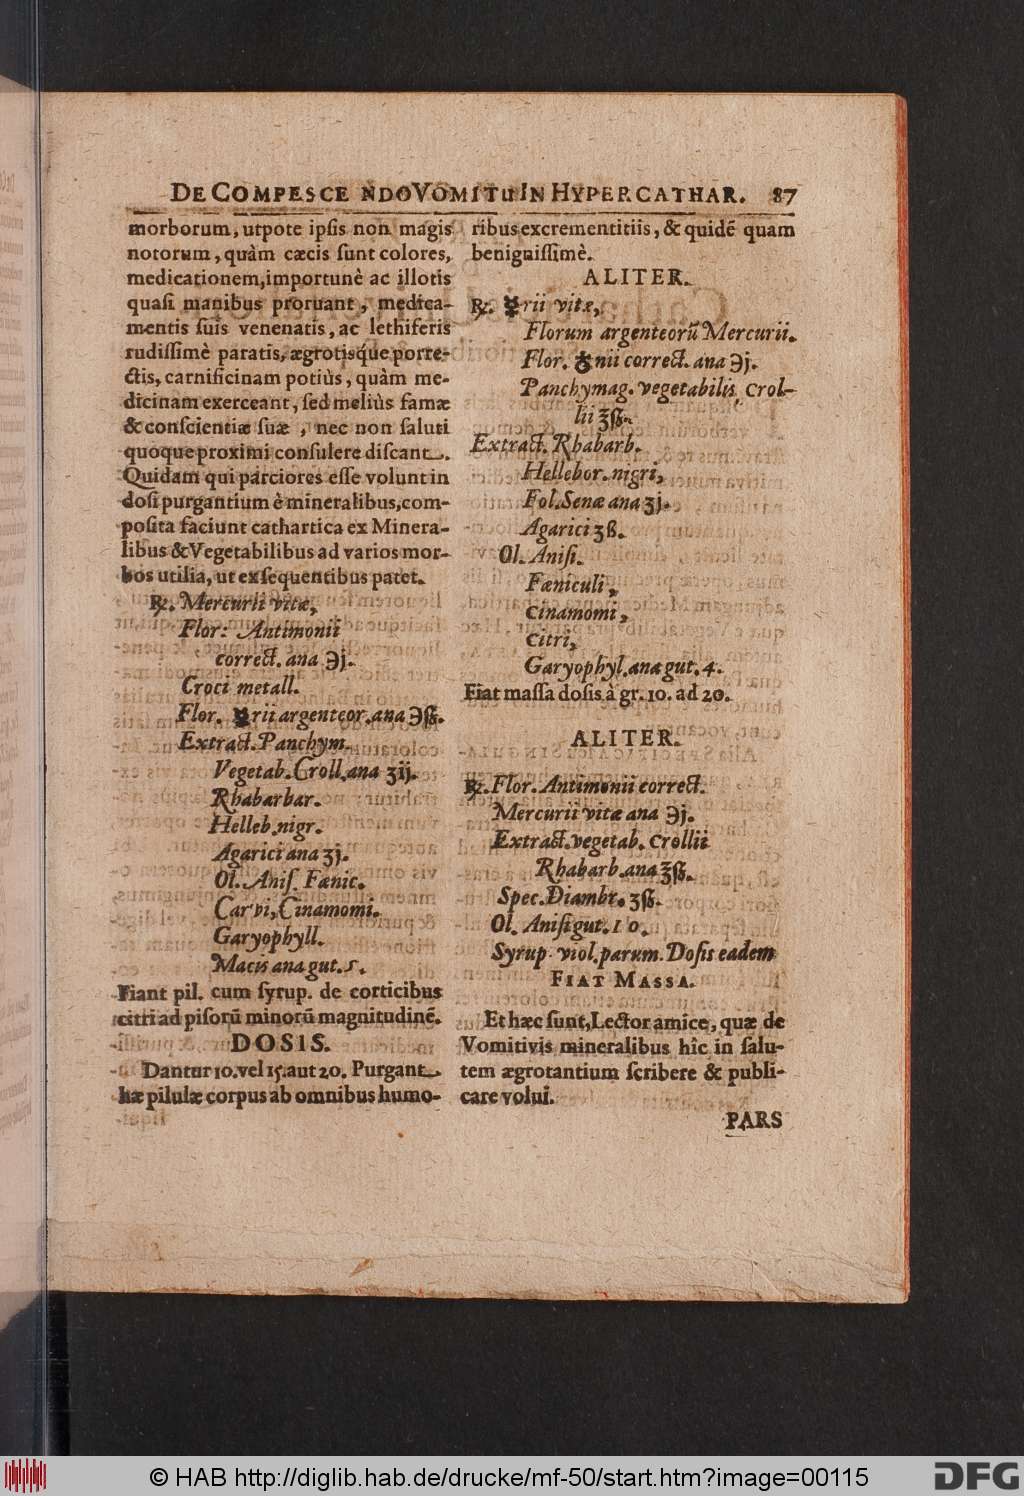 DE COMPESCE NDO VOMITU IN HYPERCATHAR. 87
morborum, utpote ipſis non magis
notorum, quàm cæcis ſunt colores,
medicationem, importunè ac illotis
quaſi manibus proruant, medica-
mentis ſuis venenatis, ac lethiferis
rudiſſimè paratis, ægrotiſq́ue porre-
ctis, carnificinam potiùs, quàm me-
dicinam exerceant, ſed meliùs famæ
& conſcientiæ ſuæ, nec non ſaluti
quoque proximi conſulere diſcant.
Quidam qui parciores eſſe volunt in
doſi purgantium è mineralibus, com-
poſita faciunt cathartica ex Minera-
libus & Vegetabilibus ad varios mor-
bos utilia, ut ex ſequentibus patet.
℞. Mercurii vitæ,
Flor: Antimonii
correct. ana ℈j.
Croci metall.
Flor. ☿rii argenteor. ana ℈ß.
Extract. Panchym.
Vegetab. Croll. ana ʒij.
Rhabarbar.
Helleb. nigr.
Agarici ana ʒj.
Ol. Aniſ. Fænic.
Carvi, Cinamomi.
Garyophyll.
Macis ana gut. 5.
Fiant pil. cum ſyrup. de corticibus
citri ad piſorū minorū magnitudinē.
DOSIS.
Dantur 10. vel 15. aut 20. Purgant
hæ pilulæ corpus ab omnibus humo-
ribus excrementitiis, & quidē quam
benigniſſimè.
ALITER.
℞. ☿rii vitæ,
Florum argenteorū Mercurii.
Flor. ♁nii correct. ana ℈j.
Panchymag. vegetabilis Crol-
lii ʒß.
Extract. Rhabarb.
Hellebor. nigri,
Fol. Senæ ana ʒj.
Agarici ʒß.
Ol. Aniſi.
Fæniculi,
Cinamomi,
Citri,
Garyophyl. ana gut. 4.
Fiat maſſa doſis à gr. 10. ad 20.
ALITER.
℞. Flor. Antimonii correct.
Mercurii vitæ ana ℈j.
Extract. vegetab. Crollii
Rhabarb. ana ʒß.
Spec. Diambr. ʒß.
Ol. Aniſi gut. 10.
Syrup. viol. parum. Doſis eadem
FIAT MASSA.
Et hæc ſunt, Lector amice, quæ de
Vomitivis mineralibus hîc in ſalu-
tem ægrotantium ſcribere & publi-
care volui.
PARS
© HAB http://diglib.hab.de/drucke/mf-50/start.htm?image=00115
DFG